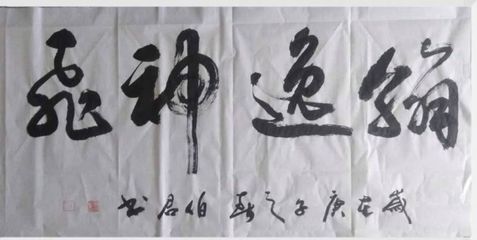 翰逸神飛
歲在庚子之春伯君書